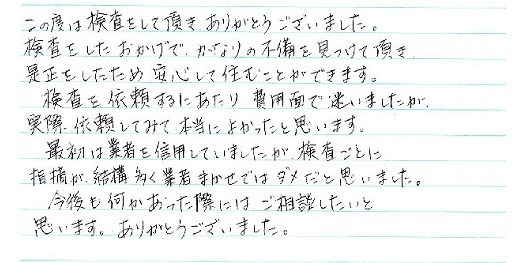 この度は検査をして頂き ありがとうございました。
検査をしたおかげで、かなりの不備を見つけて頂き
是正をしたため 安心して住むことができます。
検査を依頼するにあたり 費用面で迷いましたが、
実際 依頼してみて 本当によかったと思います。
最初は業者を信用していましたが 検査ごとに
指摘が、結構多く業者まかせではダメだと思いました。
今後も何かあった際には ご相談したいと
思います。ありがとうございました。